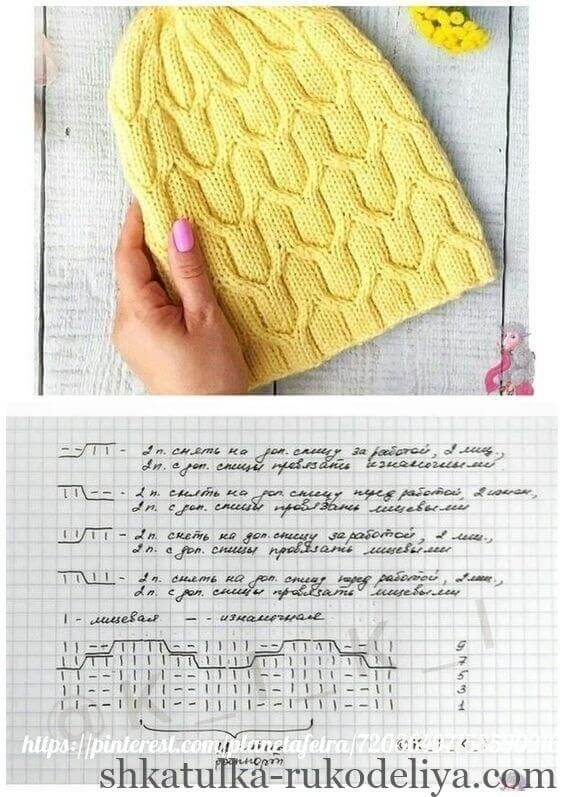 2 п. снять на доп. спицу за работой, 2 лиц.,
2п. с доп. спицы провязать изнаночными.
2 п. снять на доп. спицу перед работой, 2 изнан.,
2 п. с доп. спицы провязать лицевыми
2 п. снеть на доп. спицу за работой, 2 лиц.,
2 п. с доп. спицы провязать лицевыми
2 п. снять на доп. спицу перед работой, 2 лиц.,
2 п. с доп. спицы провязать лицевыми
| - лицевая — - изнаночная
9
7
5
3
1
https://pinterest.com/planetafetra/
раппорт
shkatulka-rukodeliya.com